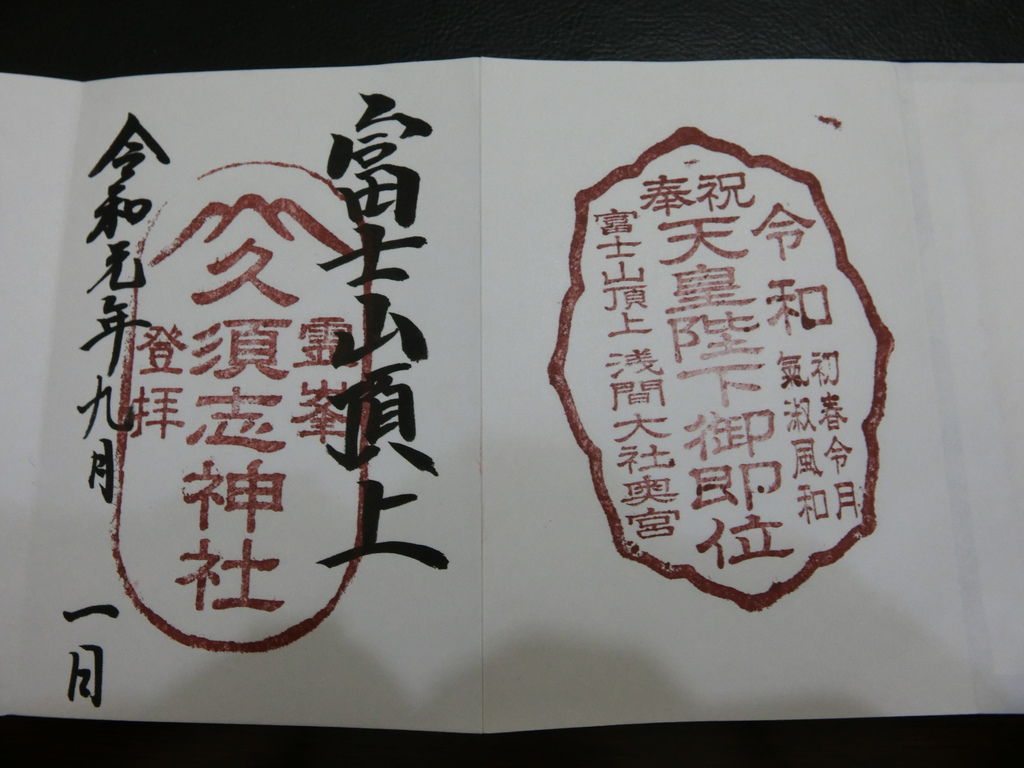 奉祝
令和
初春令月
氣淑風和
天皇陛下御即位
富士山頂上浅間大社奥宮
富士山頂上
靈峯
久須志神社
登拝
令和元年九月一日